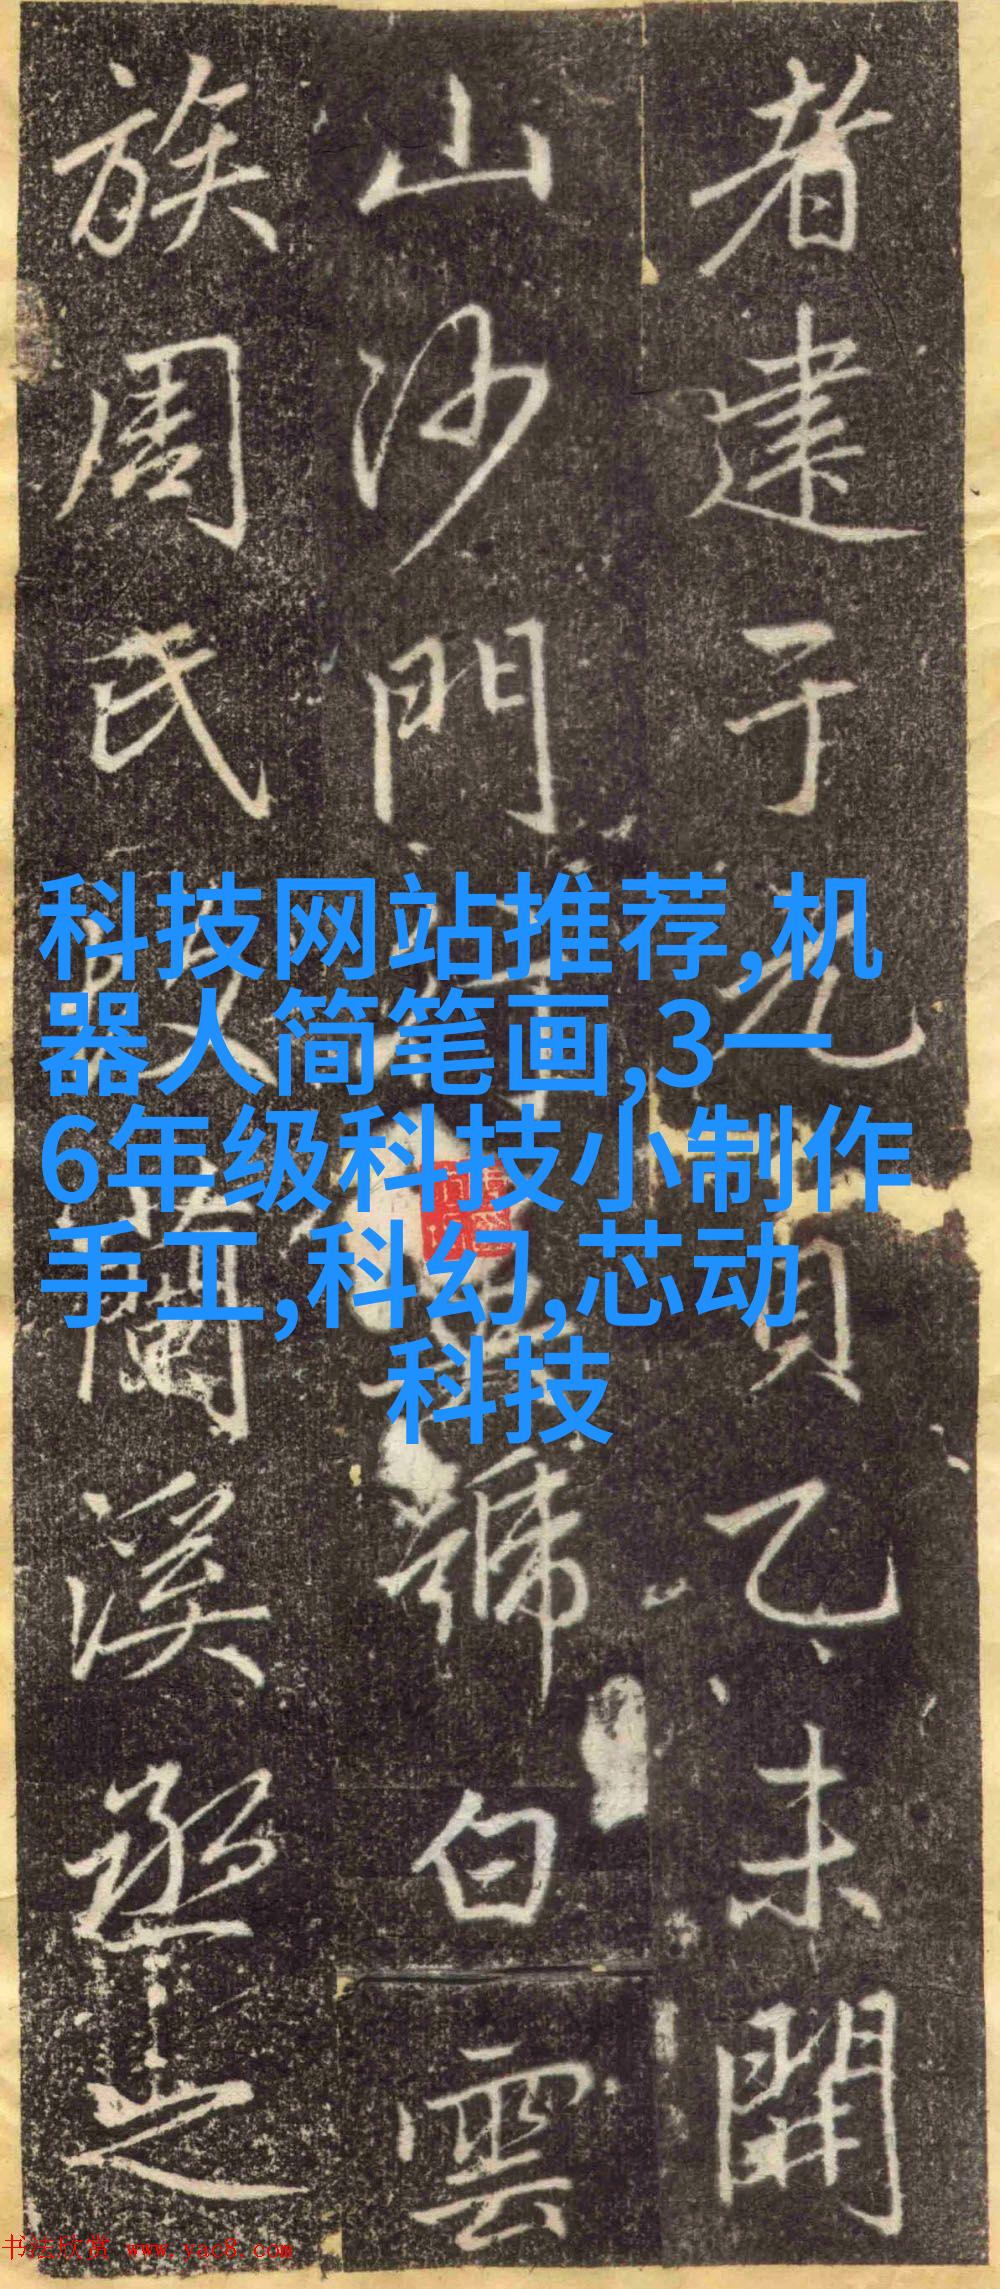 者建于元貞乙未開
山沙門號白雲
族周氏蘭溪丞之
科技网站推荐,机
器人简笔画,3一
6年级科技小制作
手工,科幻,芯动
科技
书法欣赏 www.yac8.com